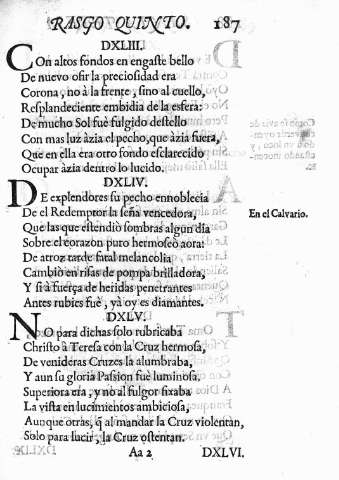 RASGO QUINTO. 187
DXLIII.
COn altos fondos en engaste bello
De nuevo ofir la preciosidad era
Corona, no à la frente, sino al cuello,
Resplandeciente embidia de la esfera:
De mucho Sol fuè fulgido destello
Con mas luz àzia el pecho, que àzia fuera,
Que en ella era otro fondo esclarecido
Ocupar àzia dentro lo lucido.
DXLIV.
DE explendores su pecho ennoblecia
De el Redemptor la seña vencedora,
En el Calvario.
Que las que estendiò sombras algun dia
Sobre el corazon puro hermoseò aora:
De atroz tarde fatal melancolia
Cambiò en risas de pompa brilladora,
Y si à fuerça de heridas penetrantes
Antes rubies fuè, yà oy es diamantes.
DXLV.
NO para dichas solo rubricaba
Christo à Teresa con la Cruz hermosa,
De venideras Cruzes la alumbraba,
Y aun su gloria Passion fuè luminosa.
Superiora era, y no al fulgor fixaba
La vista en lucimientos ambiciosa,
Aunque otras, q̃ al mandar la Cruz violentan,
Solo para lucir, la Cruz ostentan.
Aa 2 DXLVI.